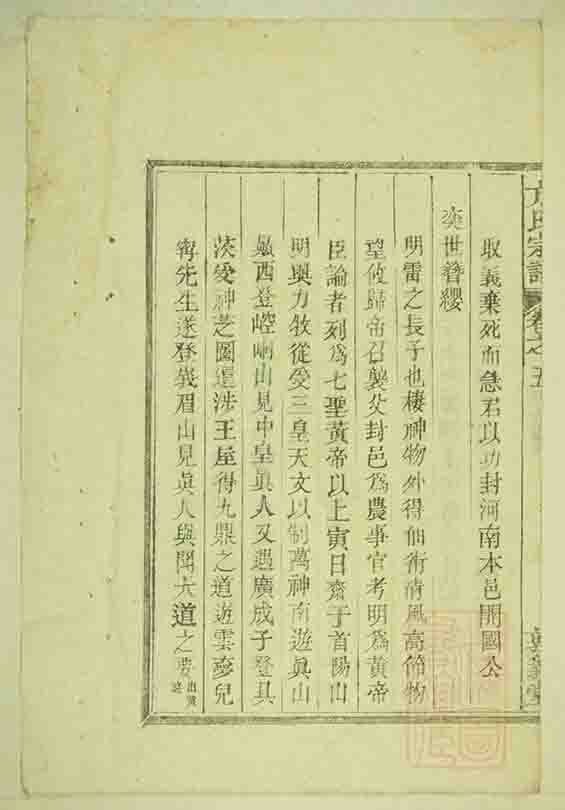 氏宗譜 卷之五
取義棄死而急君以功封河南本邑開國公
奕世簪纓
明雷之長子也棲神物外得仙術清風高節物
望攸歸帝召襲父封邑為農事官考明為黃帝
臣論者列為七聖黃帝以上寅日齋于首陽山
明與力牧從受三皇天文以制萬神南遊眞山
西登崆峒山見中皇眞人又過廣成子登具
茨受神芝圖還涉王屋得九鼎之道遊雲夢兒
甯先生遂登峩眉山見眞人與聞大道之要